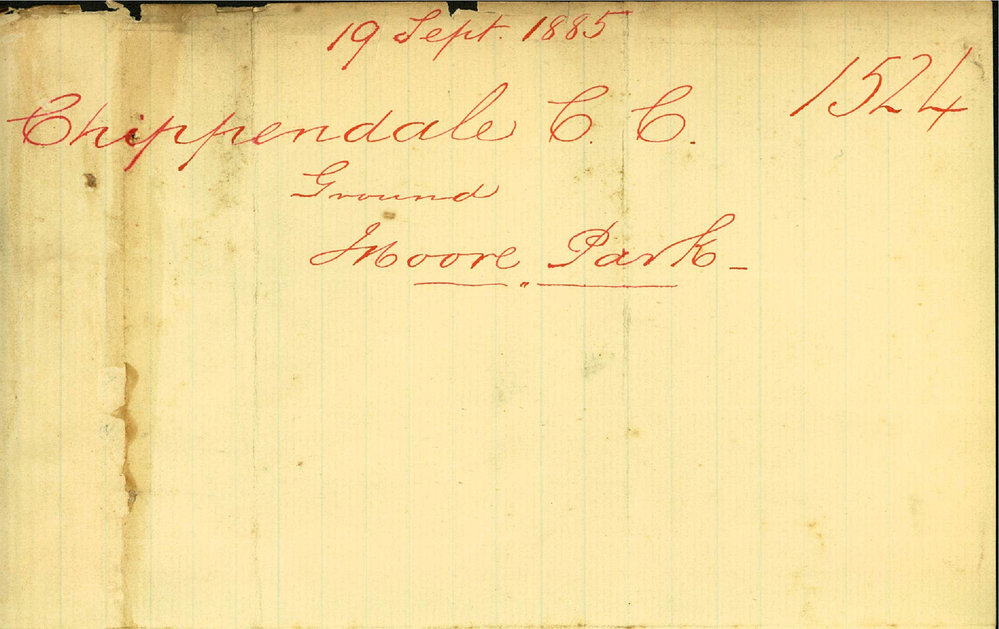 19 Sept. 1885
1524
Chippendale C. C.
Ground
Moore Park -